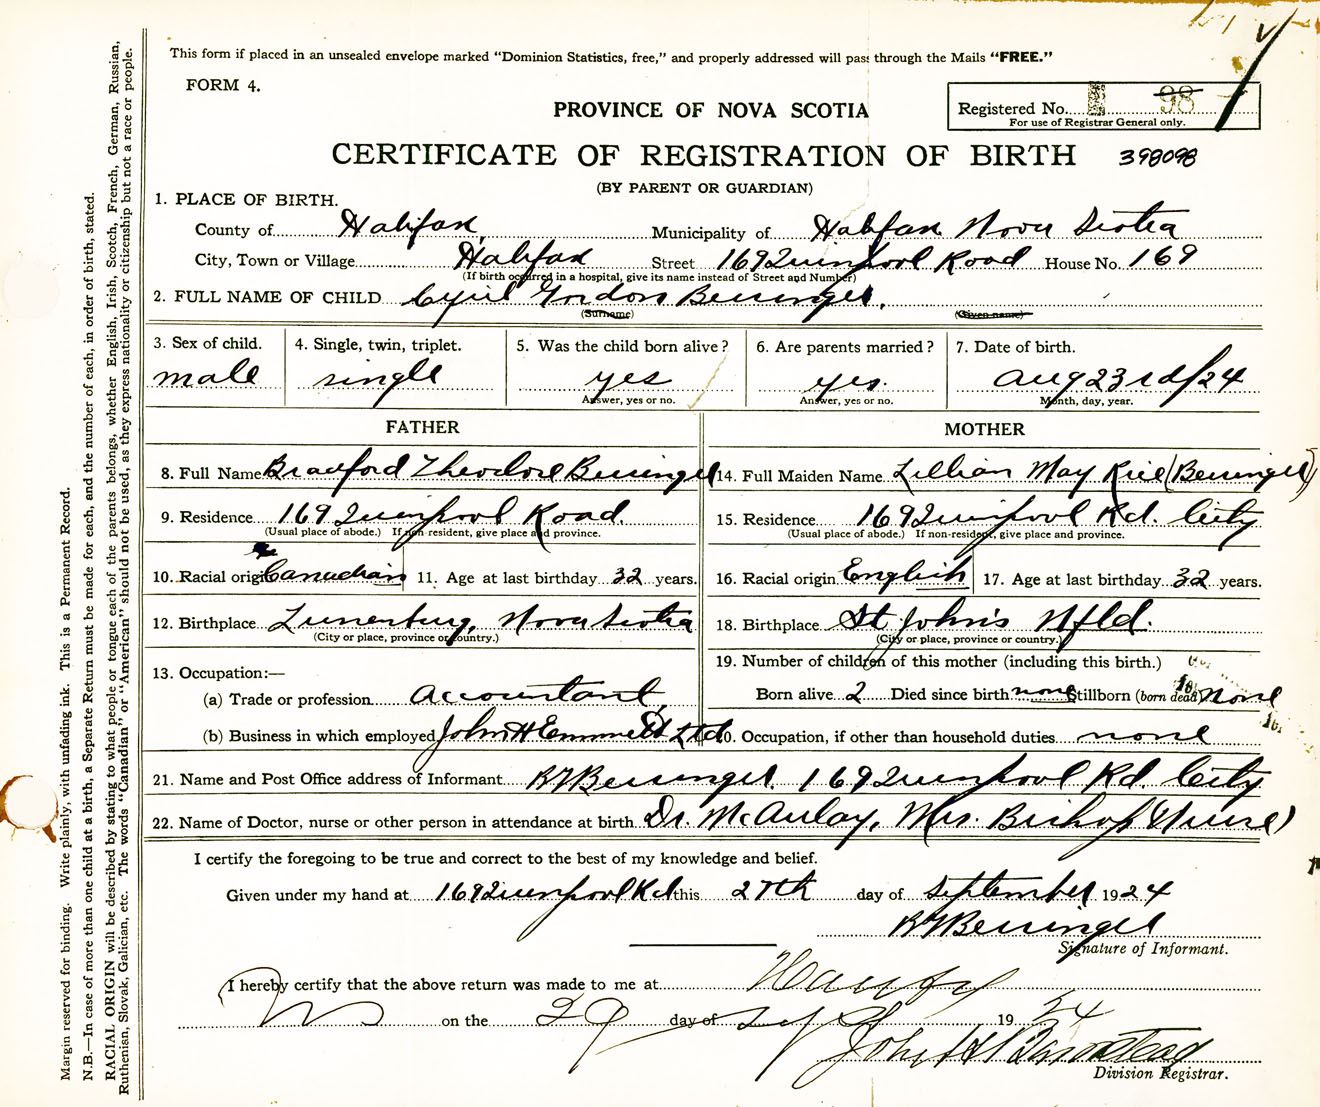 This form if placed in an unsealed envelope marked “Dominion Statistics, free,” and properly addressed will pass through the Mails “FREE.”
FORM 4.
PROVINCE OF NOVA SCOTIA
Registered No. 98
For use of Registrar General only.
CERTIFICATE OF REGISTRATION OF BIRTH 398098
(BY PARENT OR GUARDIAN)
1. PLACE OF BIRTH.
County of Halifax, Municipality of Halifax Nova Scotia
City, Town or Village Halifax Street 169 Quinpool Road House No. 169
(If birth occurred in a hospital, give its name instead of Street and Number)
2. FULL NAME OF CHILD Cyril Gordon
(Surname) (Given name)
3. Sex of child. 4. Single, twin, triplet. 5. Was the child born alive? 6. Are parents married? 7. Date of birth.
male single yes yes. Aug 23rd/24
Answer, yes or no. Answer, yes or no. Month, day, year.
FATHER MOTHER
8. Full Name Theodore 14. Full Maiden Name Lillian May
9. Residence 169 Quinpool Road. 15. Residence 169 Quinpool Rd. City
(Usual place of abode.) If non-resident, give place and province. (Usual place of abode.) If non-resident, give place and province.
10. Racial origin Canadian 11. Age at last birthday 32 years. 16. Racial origin English 17. Age at last birthday 32 years.
12. Birthplace Lunenburg, Nova Scotia 18. Birthplace St John's Nfld.
(City or place, province or country.) (City or place, province or country.)
13. Occupation:— 19. Number of children of this mother (including this birth.)
(a) Trade or profession Accountant Born alive 2 Died since birth none Stillborn (born dead) none
(b) Business in which employed John H Emmett Ltd 20. Occupation, if other than household duties. none
21. Name and Post Office address of Informant 169 Quinpool Rd. City
22. Name of Doctor, nurse or other person in attendance at birth Dr. McAulay, Mrs. Bishop (Nurse)
I certify the foregoing to be true and correct to the best of my knowledge and belief.
Given under my hand at 169 Quinpool Rd this 27th day of September 1924
Signature of Informant.
I hereby certify that the above return was made to me at
on the 29 day of Sept 1924
John
Division Registrar.
Margin reserved for binding. Write plainly, with unfading ink. This is a Permanent Record.
N.B.—In case of more than one child at a birth, a Separate Return must be made for each, and the number of each, in order of birth, stated.
RACIAL ORIGIN will be described by stating to what people or tongue each of the parents belongs, whether English, Irish, Scotch, French, German, Russian,
Ruthenian, Slovak, Galician, etc. The words “Canadian” or “American” should not be used, as they express nationality or citizenship but not a race or people.